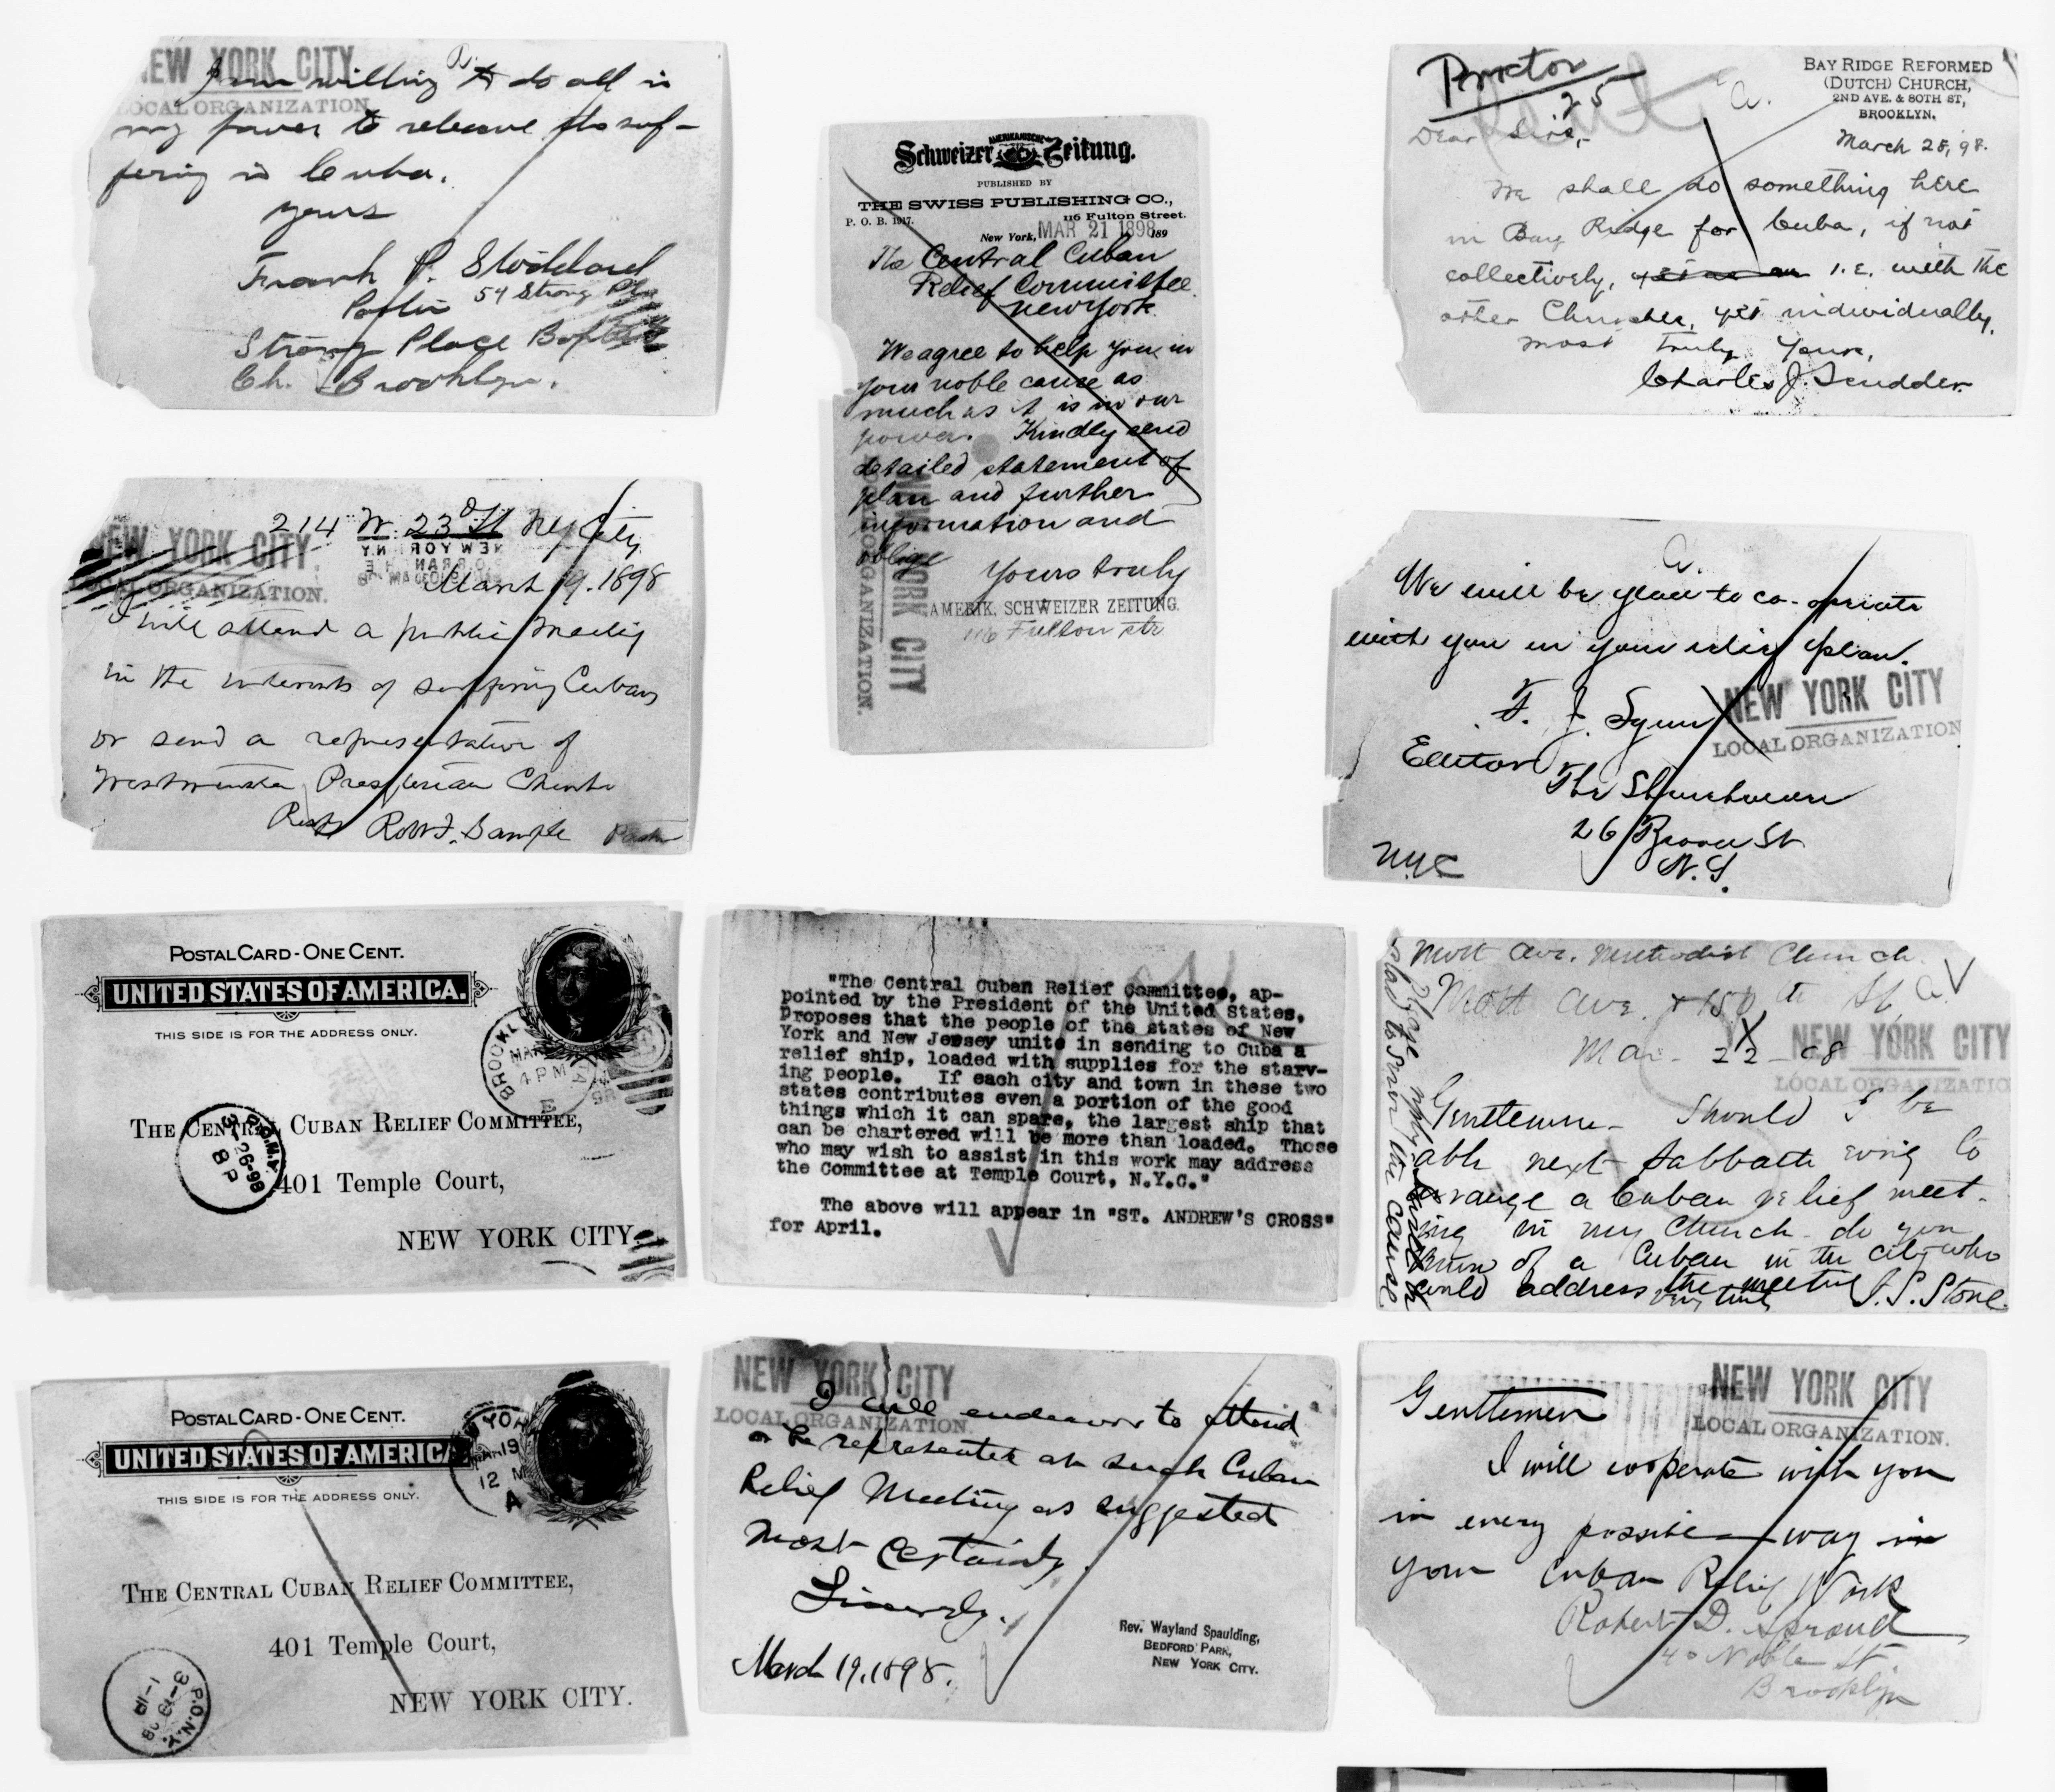 NEW YORK CITY
LOCAL ORGANIZATION
I am willing to do all in
my power to releave the suf-
fering in Cuba.
Yours
Frank P. Stoddard
54 Strong Pl.
Strong Place Baptist
Ch. Brooklyn.
AMERIKANISCHE
Schweizer Zeitung.
PUBLISHED BY
THE SWISS PUBLISHING CO.,
P. O. B. 1917. 116 Fulton Street.
New York, MAR 21 1898 189
The Central Cuban
Relief Committee
New York
We agree to help you in
your noble cause as
much as it is in our
power. Kindly send
detailed statement of
plan and further
information and
oblige
Yours truly
AMERIK. SCHWEIZER ZEITUNG.
116 Fulton str
NEW YORK CITY
LOCAL ORGANIZATION.
Proctor
25
a.
BAY RIDGE REFORMED
(DUTCH) CHURCH,
2ND AVE. & 80TH ST,
BROOKLYN.
March 25, 98.
Dear Sirs,
We shall do something here
in Bay Ridge for Cuba, if not
collectively, i.e. with the
other Churches, yet individually.
Most truly Yours,
Charles J. Scudder.
214 W. 23d St NY City
NEW YORK CITY.
LOCAL ORGANIZATION.
March 19. 1898
I will attend a public meeting
in the interests of suffering Cubans
or send a representative of
Westminster Presbyterian Church
Robt. F. Sample Pastor
a.
We will be glad to co-operate
with you in your relief plan.
NEW YORK CITY
LOCAL ORGANIZATION
Editor
The
26
N.Y.
N.Y.C
POSTAL CARD - ONE CENT.
UNITED STATES OF AMERICA.
THIS SIDE IS FOR THE ADDRESS ONLY.
BROOKLYN
4 PM
98
E
P.O.N.Y.
3-26-98
8 P
THE CENTRAL CUBAN RELIEF COMMITTEE,
401 Temple Court,
NEW YORK CITY.
"The Central Cuban Relief Committee, ap-
pointed by the President of the United States,
proposes that the people of the states of New
York and New Jersey unite in sending to Cuba a
relief ship, loaded with supplies for the starv-
ing people. If each city and town in these two
states contributes even a portion of the good
things which it can spare, the largest ship that
can be chartered will be more than loaded. Those
who may wish to assist in this work may address
the Committee at Temple Court, N.Y.C."
The above will appear in "ST. ANDREW'S CROSS"
for April.
Mott Ave. Methodist Church
Mott Ave. & 150th St. a
Mar. 22 - 98
NEW YORK CITY
LOCAL ORGANIZATIO
Gentlemen - Should I be
able next Sabbath evng to
arrange a Cuban relief meet-
ing in my Church - do you
know of a Cuban in the city who
could address the meeting
very truly J. S. Stone
Please reply
glad to serve the cause.
POSTAL CARD - ONE CENT.
UNITED STATES OF AMERICA
THIS SIDE IS FOR THE ADDRESS ONLY.
19
12 M
A
THE CENTRAL CUBAN RELIEF COMMITTEE,
401 Temple Court,
NEW YORK CITY.
P.O.N.Y.
3-19-98
NEW YORK CITY
LOCAL ORGANIZATION
I will endeavor to attend
or be represented at such Cuban
Relief Meeting as suggested
Most Certainly.
Sincerely.
Rev. Wayland Spaulding,
BEDFORD PARK,
NEW YORK CITY.
March 19, 1898.
NEW YORK CITY
LOCAL ORGANIZATION.
Gentlemen
I will cooperate with you
in every possible way in
your Cuban Relief Work
Robert D. Sproul
40 Noble St
Brooklyn